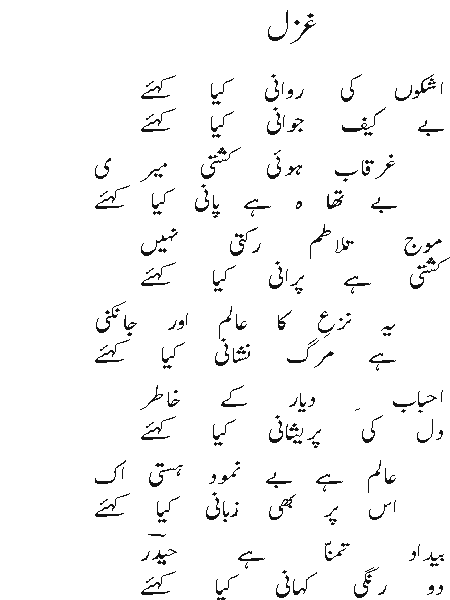 غزل
اشکوں کی روانی کیا کہئے
بے کیف جوانی کیا کہئے
غرقاب ہوئی کشتی میر ی
بے تھا ہ ہے پانی کیا کہئے
موج تلاطم رکتی نہیں
کشتی ہے پرانی کیا کہئے
یہ نزعِ کا عالم اور جانکنی
ہے مرگ نشانی کیا کہئے
احباب ِ دیار کے خاطر
دل کی پریشانی کیا کہئے
عالم ہے بے نمود ہستی اک
اس پر بھی زبانی کیا کہئے
بیداو تمنّا ہے حیدؔر
دو رنگی کہانی کیا کہئے